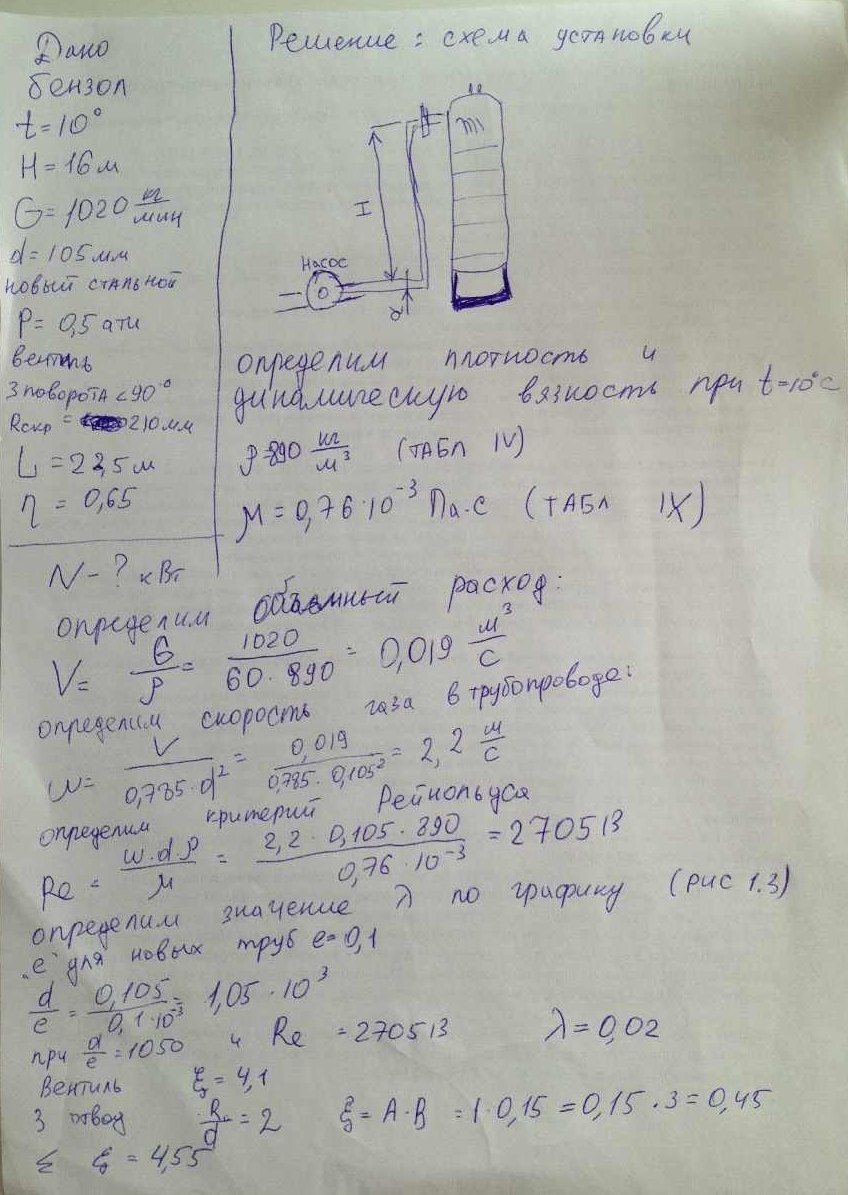 Дано
бензол
t=10°
H=16м
G=1020 кг/мин
d=105мм
новый стальной
P=0,5 ати
вентиль
3 поворота <90°
Rскр = 210мм
L=22,5м
η=0,65
N-? кВт
Решение: схема установки
H
насос
d
определим плотность и
динамическую вязкость при t=10°C
ρ=890 кг/м³ (ТАБЛ IV)
μ=0,76·10⁻³ Па·с (ТАБЛ IX)
определим объемный расход:
V= G/ρ = 1020/60·890 = 0,019 м³/с
определим скорость газа в трубопроводе:
w= V/0,785·d² = 0,019/0,785·0,105² = 2,2 м/с
определим критерий Рейнольдса
Re = w·dρ/μ = 2,2·0,105·890/0,76·10⁻³ = 270513
определим значение λ по графику (рис 1.3)
"e" для новых труб e=0,1
d/e = 0,105/0,1·10⁻³ = 1,05·10³
при d/e=1050 и Re =270513 λ=0,02
Вентиль ξ=4,1
3 отвод R/d=2 ξ=A·B =1·0,15=0,15·3=0,45
Σ ξ=4,55